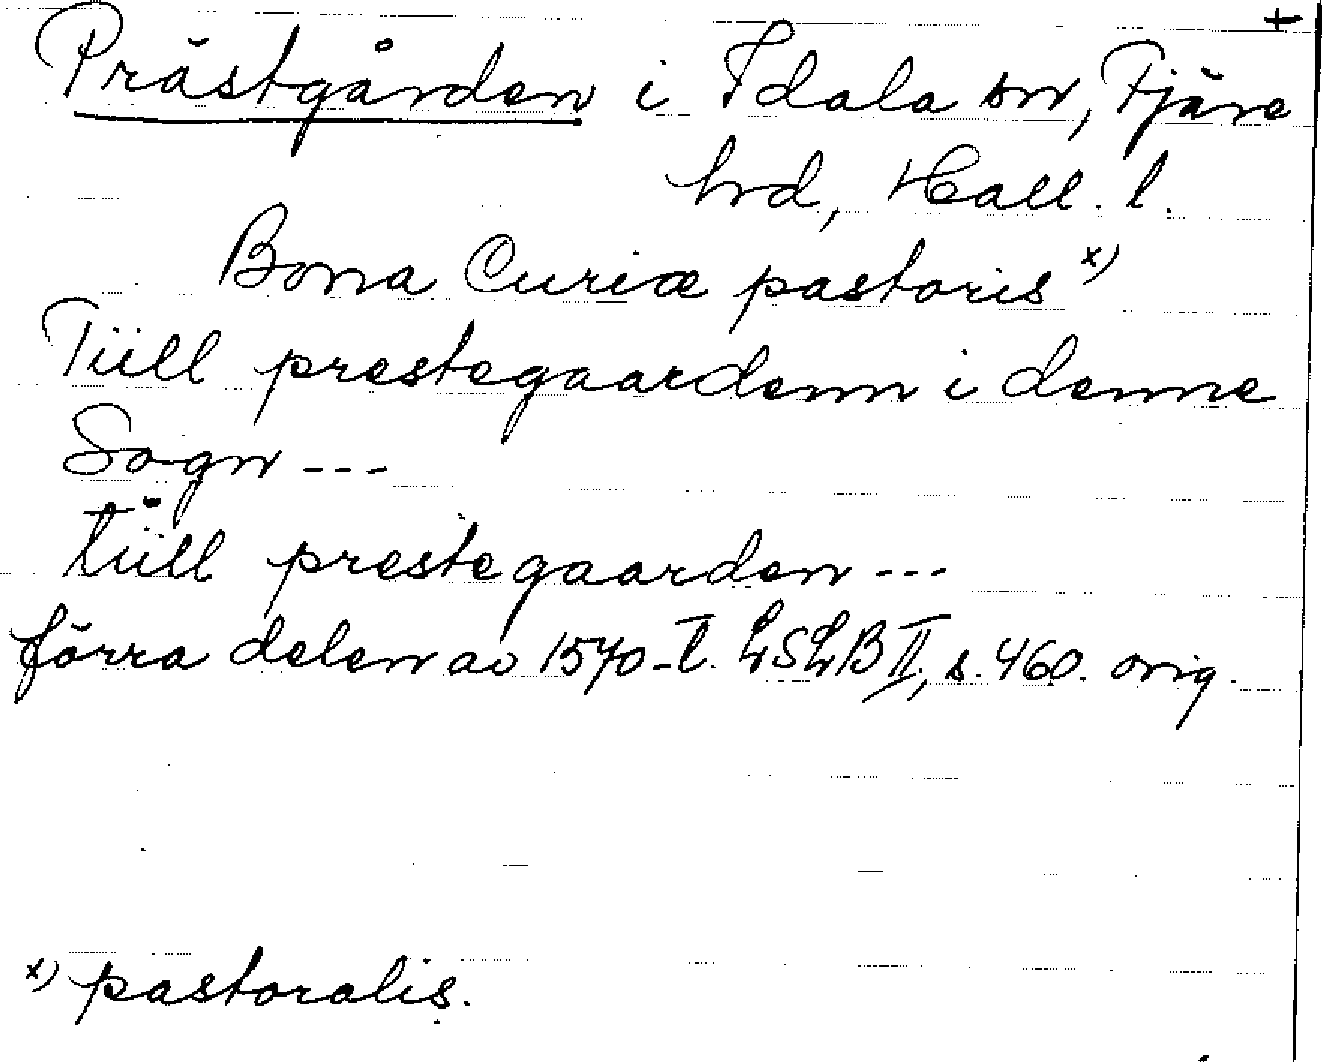 +
Prästgården i Idala sn, Fjäre
hrd, Hall. l.
Bona Curiæ pastoris x)
Tiill prestegaardenn i denne
Sogn ---
tiill prestegaarden ---
förra delen av 1570-t. LSLB II, s. 460. orig.
x) pastoralis.